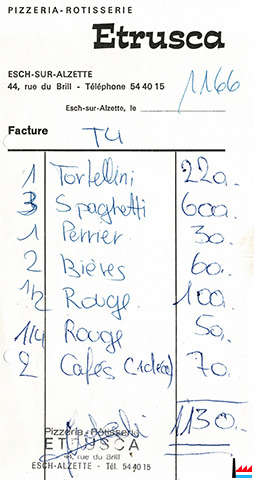 PIZZERIA-ROTISSERIE
Etrusca
ESCH-SUR-ALZETTE
44, rue du Brill - Téléphone 54 40 15
1166
Esch-sur-Alzette, le
Facture T4
1 Tortellini 220.-
3 Spaghetti 600.-
1 Perrier 30.-
2 Bières 60.-
1/2 Rouge 100.-
1/4 Rouge 50.-
2 Cafés 70.-
1130.-
Pizzeria-Rôtisserie
ETRUSCA
44, rue du Brill
ESCH-ALZETTE - Tél. 54 40 15